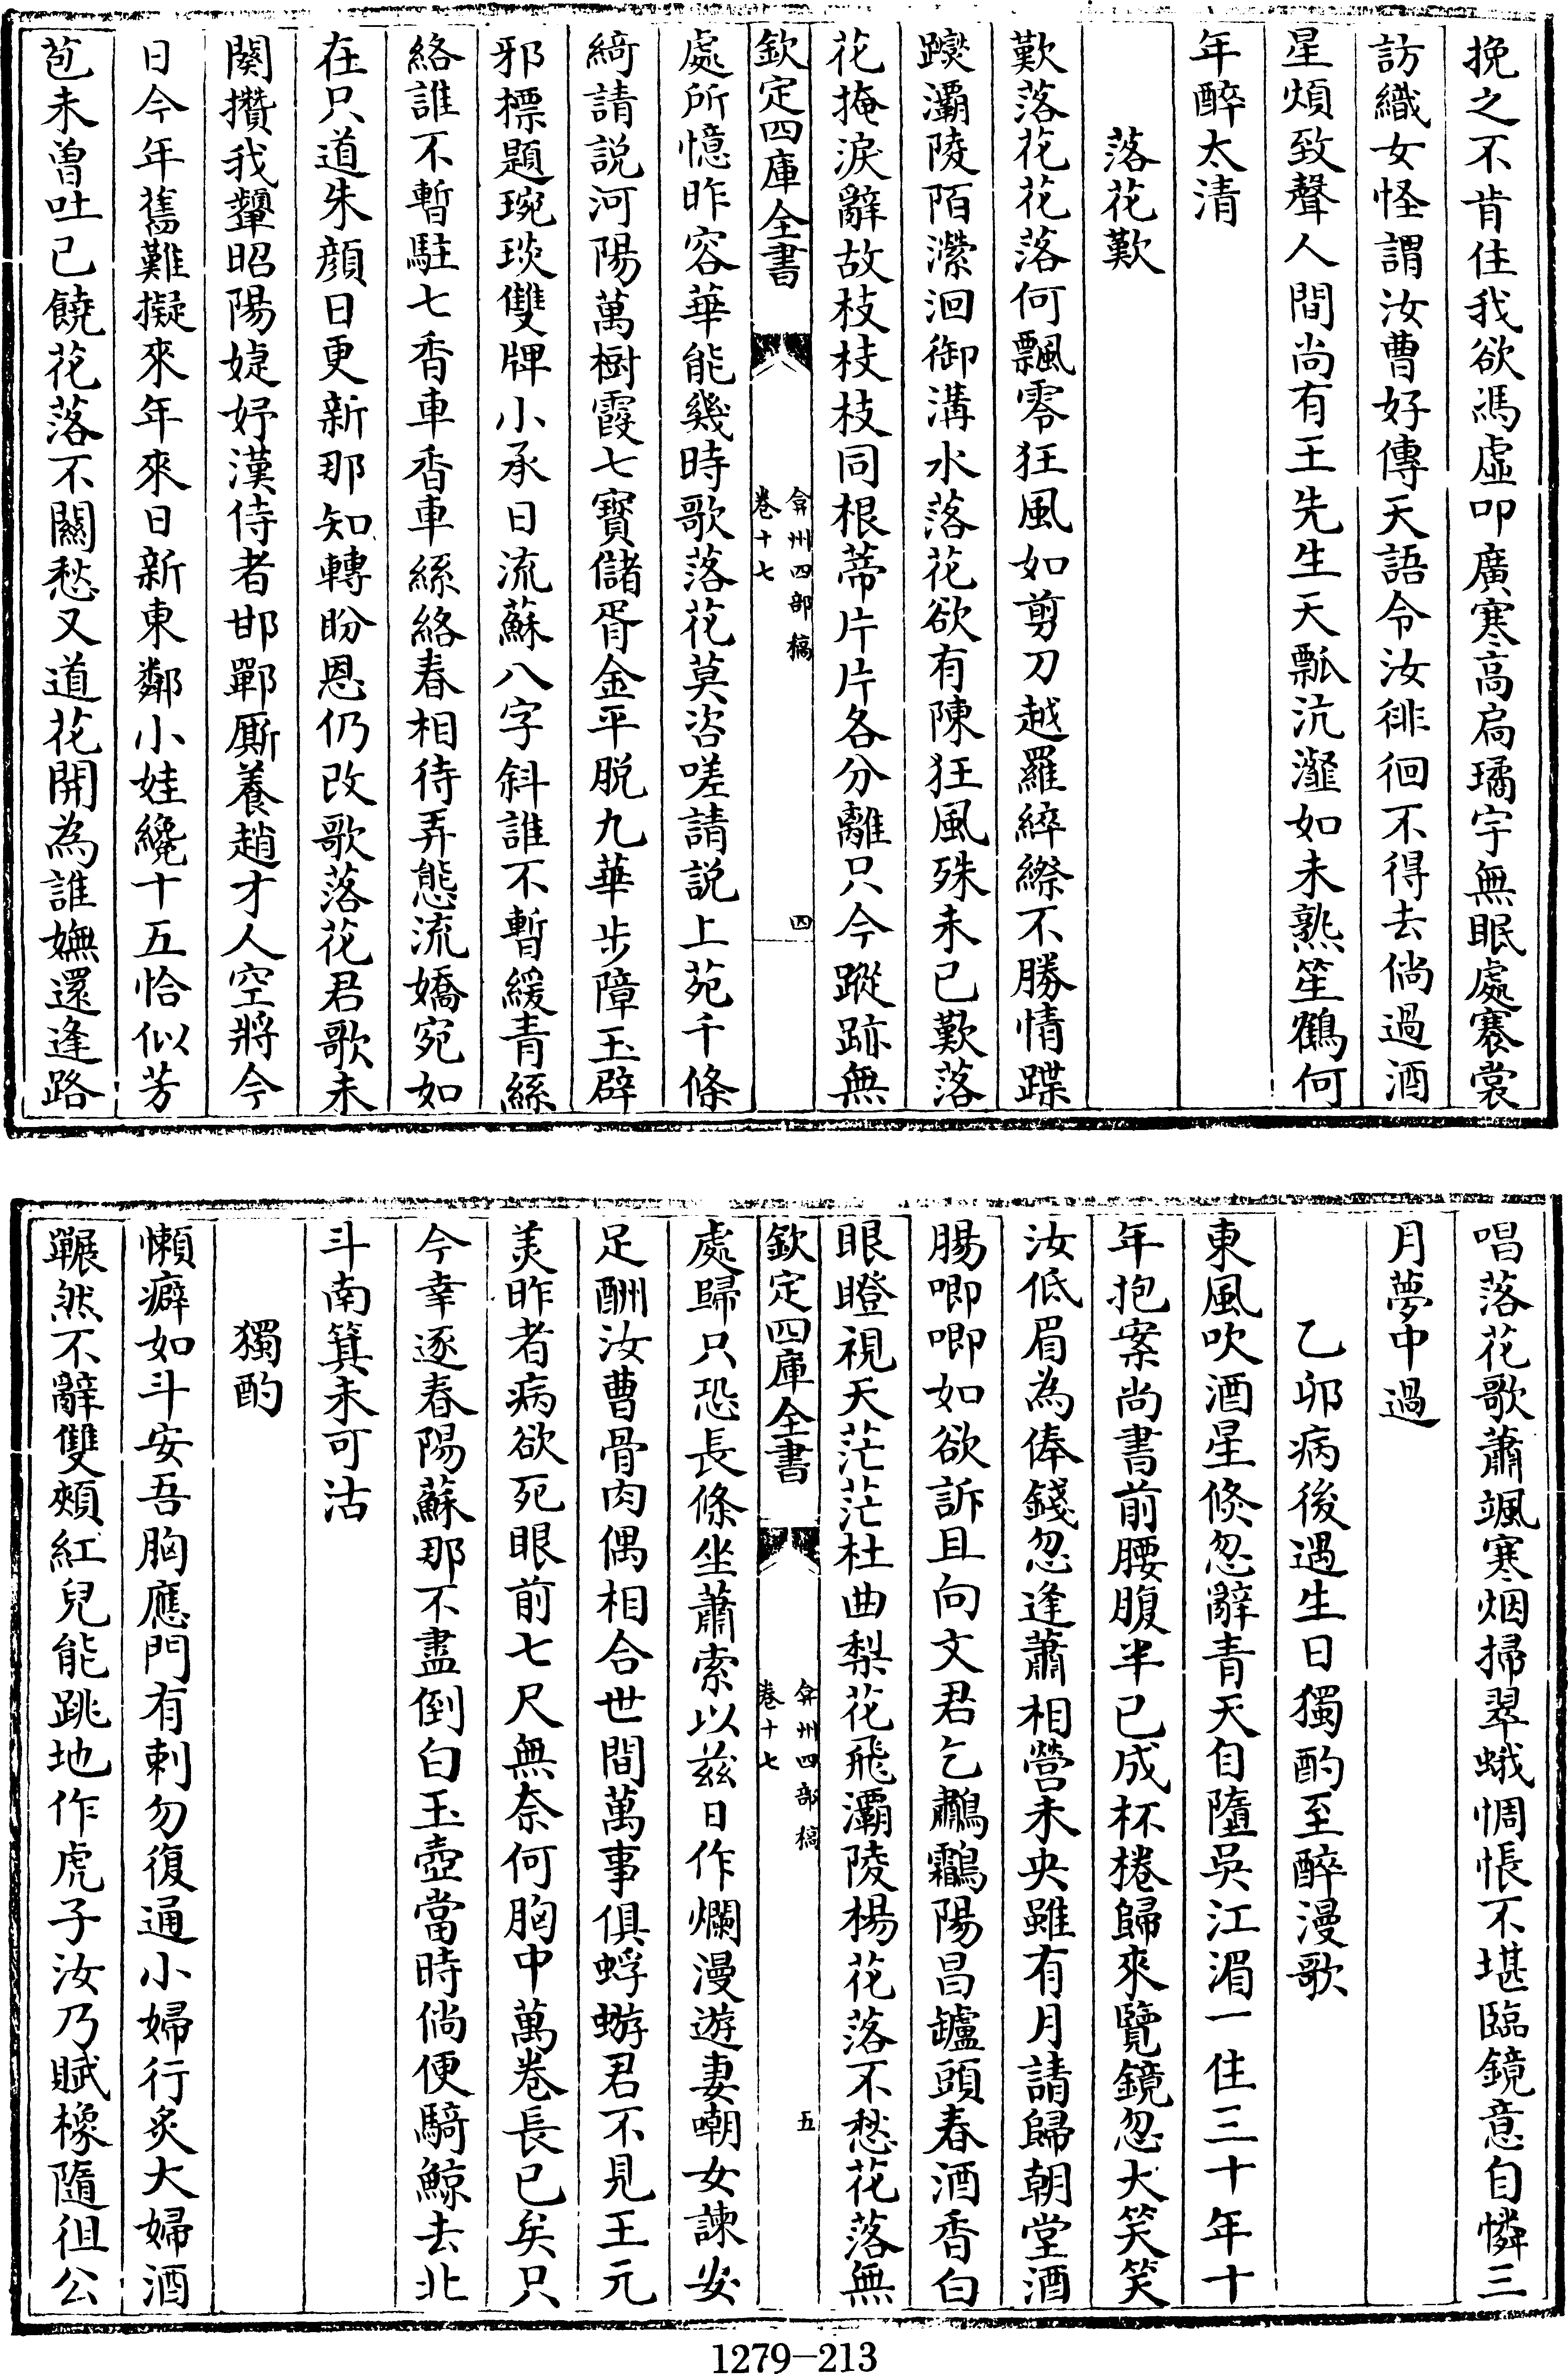 挽之不肯住我欲馮虛叩廣寒高扃璚宇無眠處褰裳
訪織女怪謂汝曹好傳天語令汝徘徊不得去倘過酒
星煩致聲人間尚有王先生天瓢沆瀣如未熟笙鶴何
年醉太清
落花歎
歎落花花落何飄零狂風如剪刀越羅綷縩不勝情蹀
躞灞陵陌瀠洄御溝水落花欲有陳狂風殊未已歎落
花掩淚辭故枝枝枝同根蒂片片各分離只今蹤跡無
欽定四庫全書
弇州四部稿
卷十七
四
處所憶昨容華能幾時歌落花莫咨嗟請説上苑千條
綺請説河陽萬樹霞七寳儲胥金平脱九華步障玉辟
邪標題琬琰雙牌小承日流蘇八字斜誰不暫緩青絲
絡誰不暫駐七香車香車絲絡春相待弄態流嬌宛如
在只道朱顔日更新那知轉盼恩仍改歌落花君歌未
闋攢我顰昭陽婕妤漢侍者邯鄲厮養趙才人空將今
日今年舊難擬來年來日新東鄰小娃纔十五恰似芳
苞未曽吐已饒花落不關愁又道花開為誰嫵還逢路
唱落花歌蕭颯寒烟掃翠蛾惆悵不堪臨鏡意自憐三
月夢中過
乙卯病後遇生日獨酌至醉漫歌
東風吹酒星倐忽辭青天自墮吳江湄一住三十年十
年抱案尚書前腰腹半已成杯棬歸來覽鏡忽大笑笑
汝低眉為俸錢忽逢蕭相營未央雖有月請歸朝堂酒
腸唧唧如欲訴且向文君乞鷫鸘陽昌鑪頭春酒香白
眼瞪視天茫茫杜曲梨花飛灞陵楊花落不愁花落無
欽定四庫全書
弇州四部稿
卷十七
五
處歸只恐長條坐蕭索以茲日作爛漫遊妻嘲女諫安
足酬汝曹骨肉偶相合世間萬事俱蜉蝣君不見王元
美昨者病欲死眼前七尺無奈何胸中萬卷長已矣只
今幸逐春陽蘇那不盡倒白玉壺當時倘便騎鯨去北
斗南箕未可沽
獨酌
懶癖如斗安吾胸應門有刺勿復通小婦行炙大婦酒
冁然不辭雙頰紅兒能跳地作虎子汝乃賦橡隨徂公
1279-213